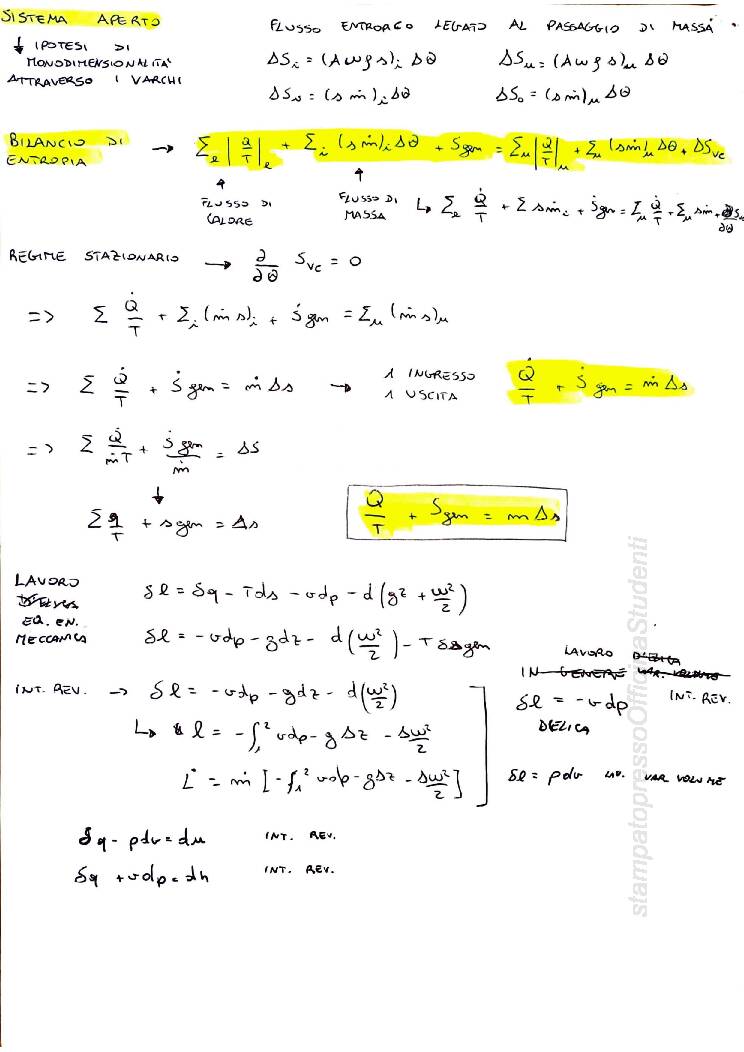 SISTEMA APERTO
↓ IPOTESI DI
MONODIMENSIONALITA'
ATTRAVERSO I VARCHI
FLUSSO ENTROPICO LEGATO AL PASSAGGIO DI MASSA
ΔSi = (Awρs)i Δθ ΔSu = (Awρs)u Δθ
ΔSi = (sṁ)i Δθ ΔSo = (sṁ)u Δθ
BILANCIO DI
ENTROPIA
→ Σe |Q/T|e + Σi (sṁ)i Δθ + Sgen = Σu |Q/T|u + Σu (sṁ)u Δθ + ΔSvc
↑ FLUSSO DI
CALORE
↑ FLUSSO DI
MASSA
↳ Σe Q̇/T + Σ sṁi + Ṡgen = Σu Q̇/T + Σu sṁ + ∂Svc/∂θ
REGIME STAZIONARIO → ∂/∂θ Svc = 0
=> Σ Q̇/T + Σi (ṁs)i + Ṡgen = Σu (ṁs)u
=> Σ Q̇/T + Ṡgen = ṁ Δs → 1 INGRESSO
1 USCITA
Q̇/T + Ṡgen = ṁ Δs
=> Σ Q̇/ṁT + Ṡgen/ṁ = ΔS
↓
Σ q/T + sgen = Δs
Q/T + Sgen = m Δs
LAVORO
EQ. EN.
MECCANICA
δl = δq - Tds - vdp - d(gz + w²/2)
δl = -vdp - gdz - d(w²/2) - Tδsgen
INT. REV. → δl = -vdp - gdz - d(w²/2)
↳ l = -∫₁² vdp - gΔz - Δw²/2
L̇ = ṁ [-∫₁² vdp - gΔz - Δw²/2]
LAVORO D'ELICA
IN GENERE VAR. VOLUME
δl = -vdp INT. REV.
D'ELICA
δl = pdv LAV. VAR VOLUME
δq - pdv = du INT. REV.
δq + vdp = dh INT. REV.
stampatopressoOfficinaStudenti